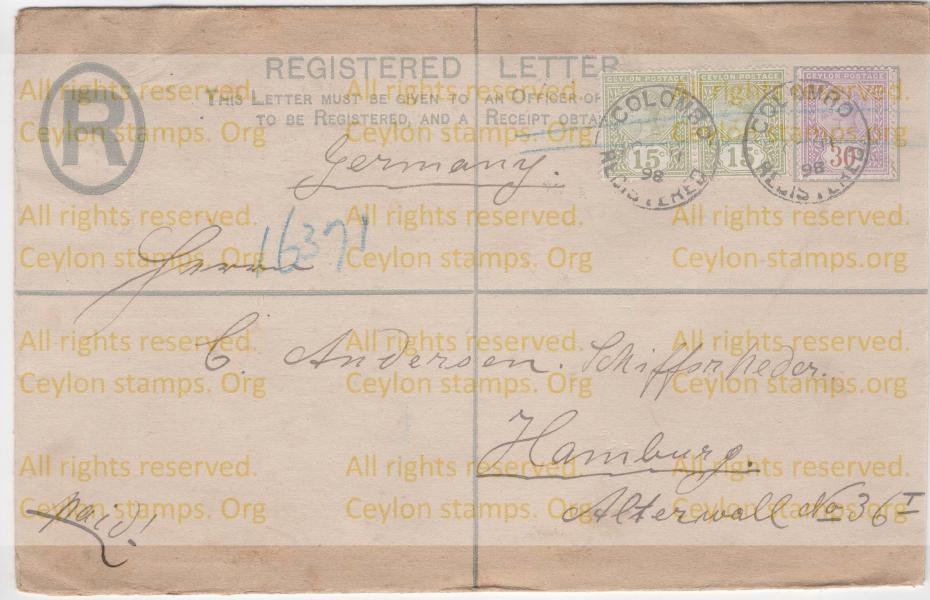 REGISTERED LETTER
THIS LETTER MUST BE GIVEN TO AN OFFICER OF
TO BE REGISTERED, AND A RECEIPT OBTAI
R
CEYLON POSTAGE
CEYLON POSTAGE
CEYLON POSTAGE
15c
15c
30
COLOMBO
98
REGISTERED
COLOMBO
98
REGISTERED
Germany.
16371
Herrn
C. Andersen. Schiffsrheder.
Hamburg.
Alterwall No 36 I
Paid!
All rights reserved. All rights reserved. All rights reserved.
Ceylon stamps. Org Ceylon stamps. Org Ceylon stamps. Org
All rights reserved. All rights reserved. All rights reserved.
Ceylon stamps. Org Ceylon stamps. Org Ceylon stamps. Org
All rights reserved. All rights reserved. All rights reserved.
Ceylon stamps. Org Ceylon stamps. Org Ceylon stamps.org
All rights reserved. All rights reserved. All rights reserved.
Ceylon stamps. Org Ceylon stamps. Org Ceylon stamps. Org